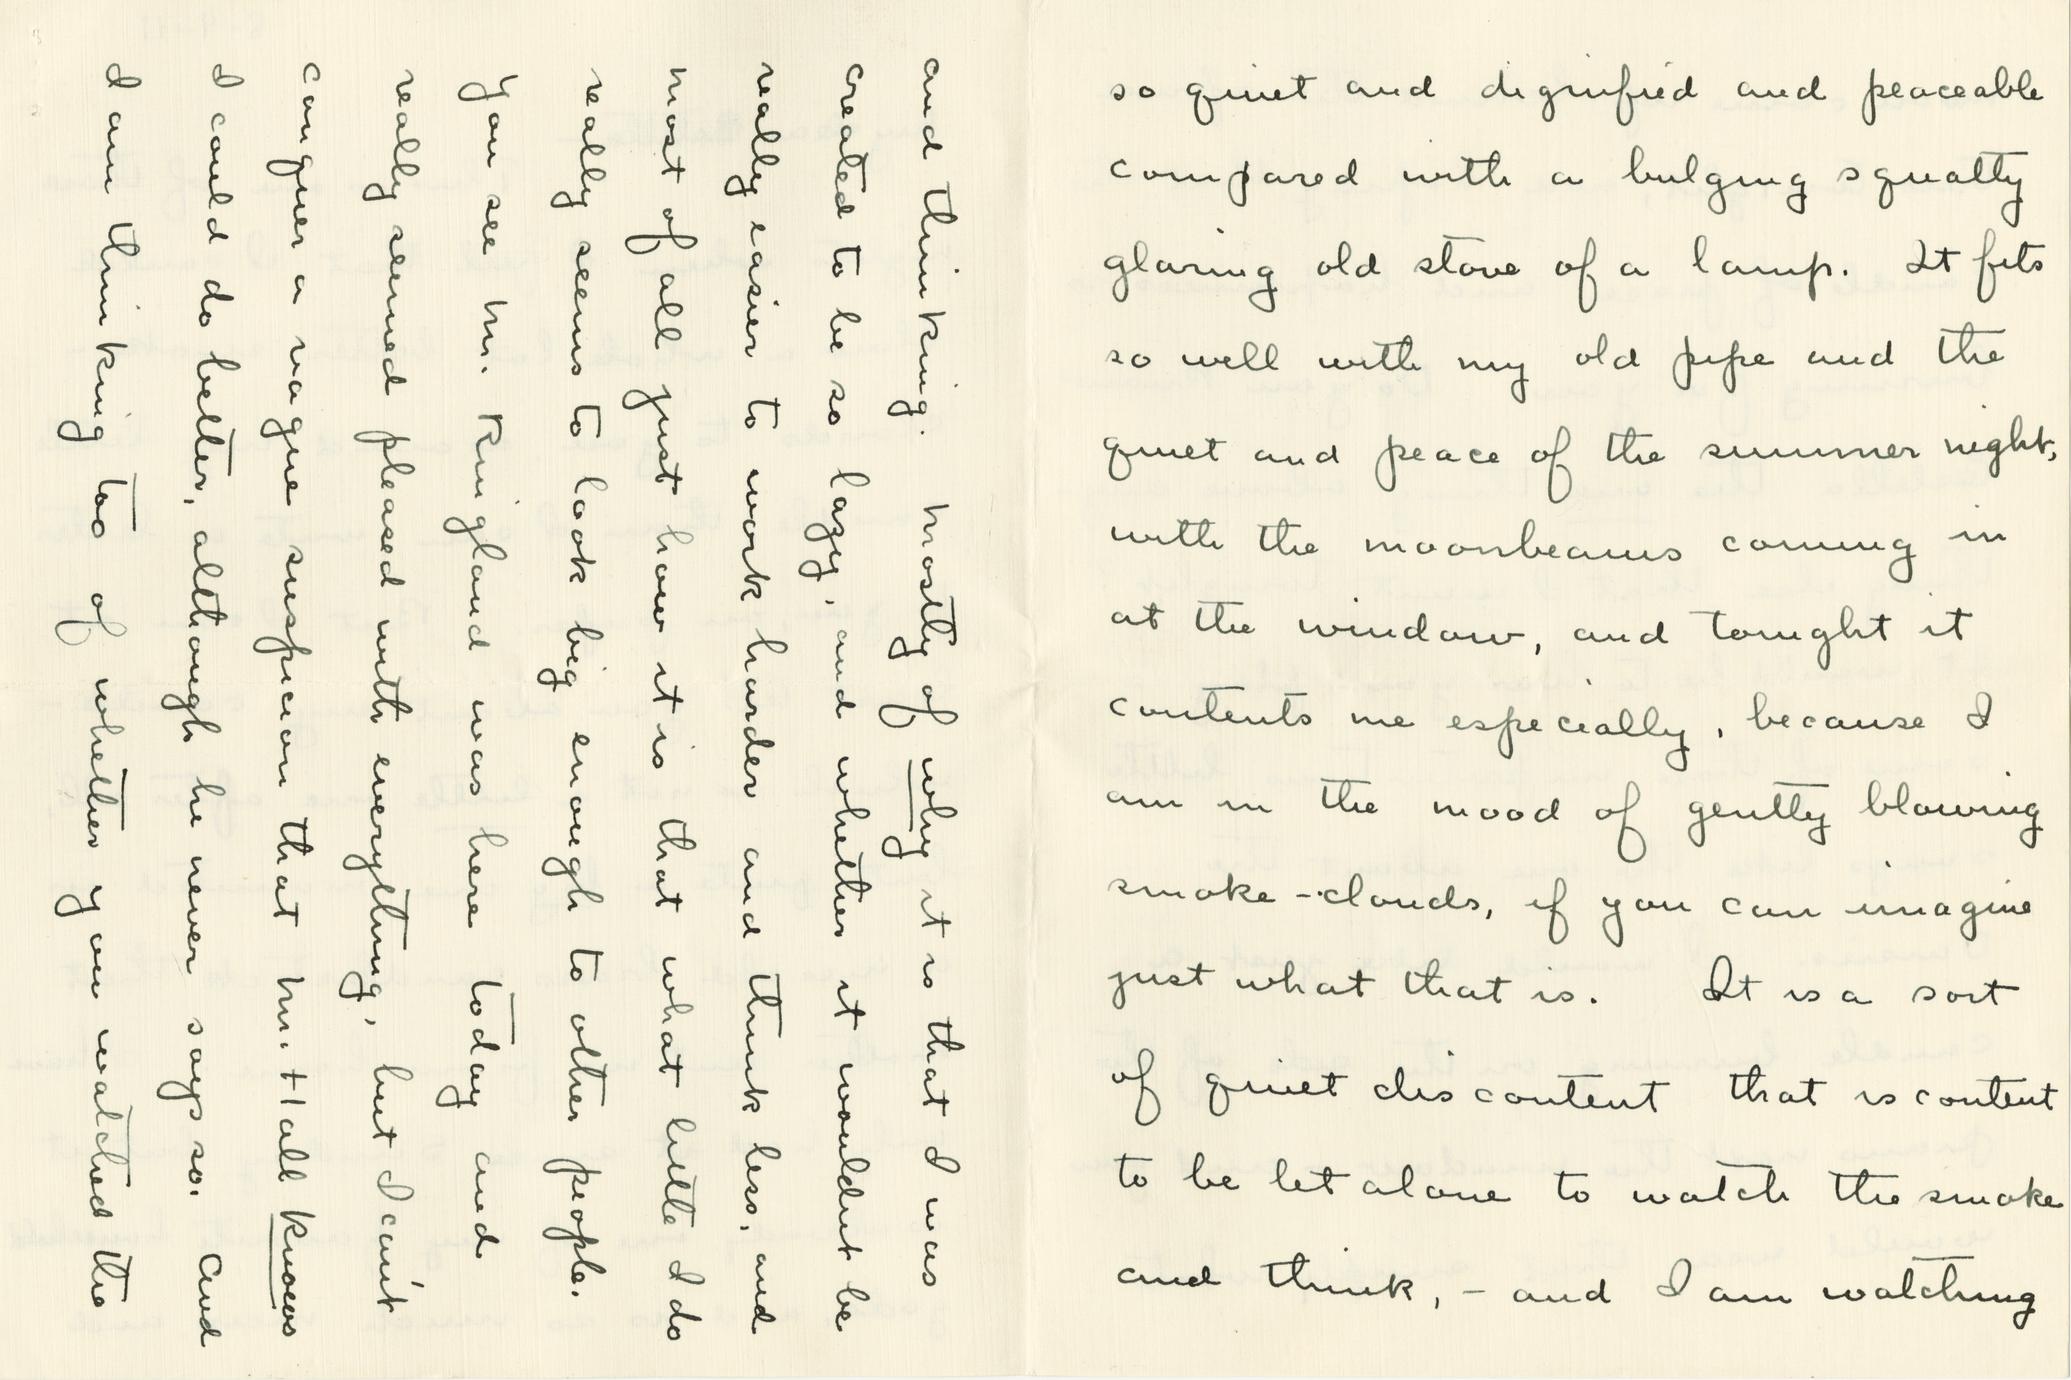 so quiet and dignified and peaceable
compared with a bulging squatty
glaring old stove of a lamp. It fits
so well with my old pipe and the
quiet and peace of the summer night,
with the moonbeams coming in
at the window, and tonight it
contents me especially, because I
am in the mood of gently blowing
smoke-clouds, if you can imagine
just what that is. It is a sort
of quiet discontent that is content
to be let alone to watch the smoke
and think, - and I am watching
and thinking. Mostly of why it is that I was
created to be so lazy, and whether it wouldnt be
really easier to work harder and think less, and
most of all just how it is that what little I do
really seems to look big enough to other people.
You see Mr. Kingland was here today and
really seemed pleased with everything, but I can't
conquer a vague suspicion that Mr. Hall knows
I could do better, although he never says so. And
I am thinking too of whether you watched the